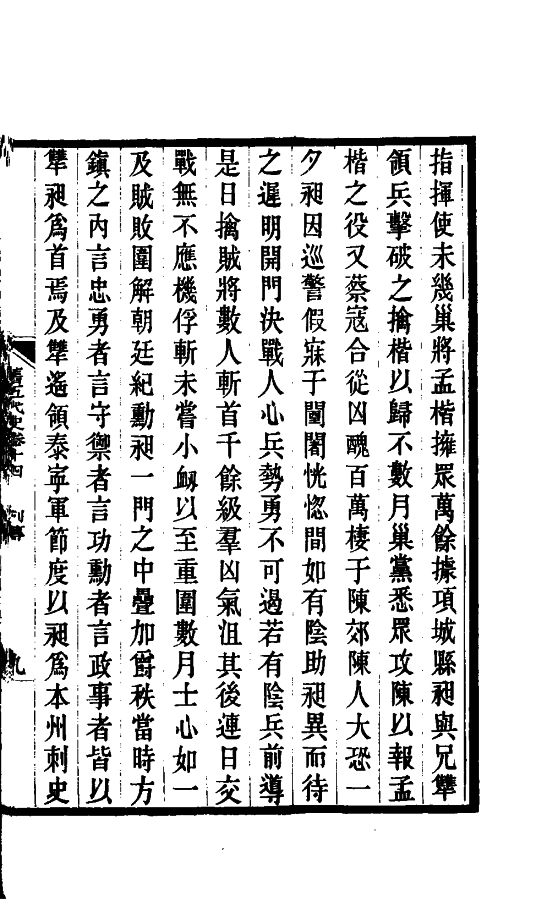 指揮使未幾巢將孟楷擁眾萬餘據項城縣昶與兄犨
領兵擊破之擒楷以歸不數月巢黨悉眾攻陳以報孟
楷之役又蔡寇合從凶醜百萬棲于陳郊陳人大恐一
夕昶因巡警假寐于闉闍恍惚間如有陰助昶異而待
之遲明開門決戰人心兵勢勇不可遏若有陰兵前導
是日擒賊將數人斬首千餘級羣凶氣沮其後連日交
戰無不應機俘斬未嘗小衂以至重圍數月士心如一
及賊敗圍解朝廷紀勳昶一門之中疊加爵秩當時方
鎮之內言忠勇者言守禦者言功勳者言政事者皆以
犨昶爲首焉及犨遙領泰寧軍節度以昶爲本州刺史
舊五代史卷十四 列傳 九